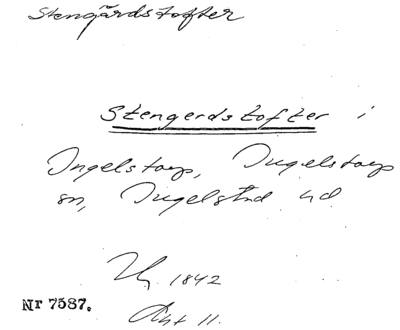 Stengårdstofter
Stengerdstofter i
Ingelstorp, Ingelstorps
sn, Ingelstad hd
1842
Nr 7587.
Akt 11.